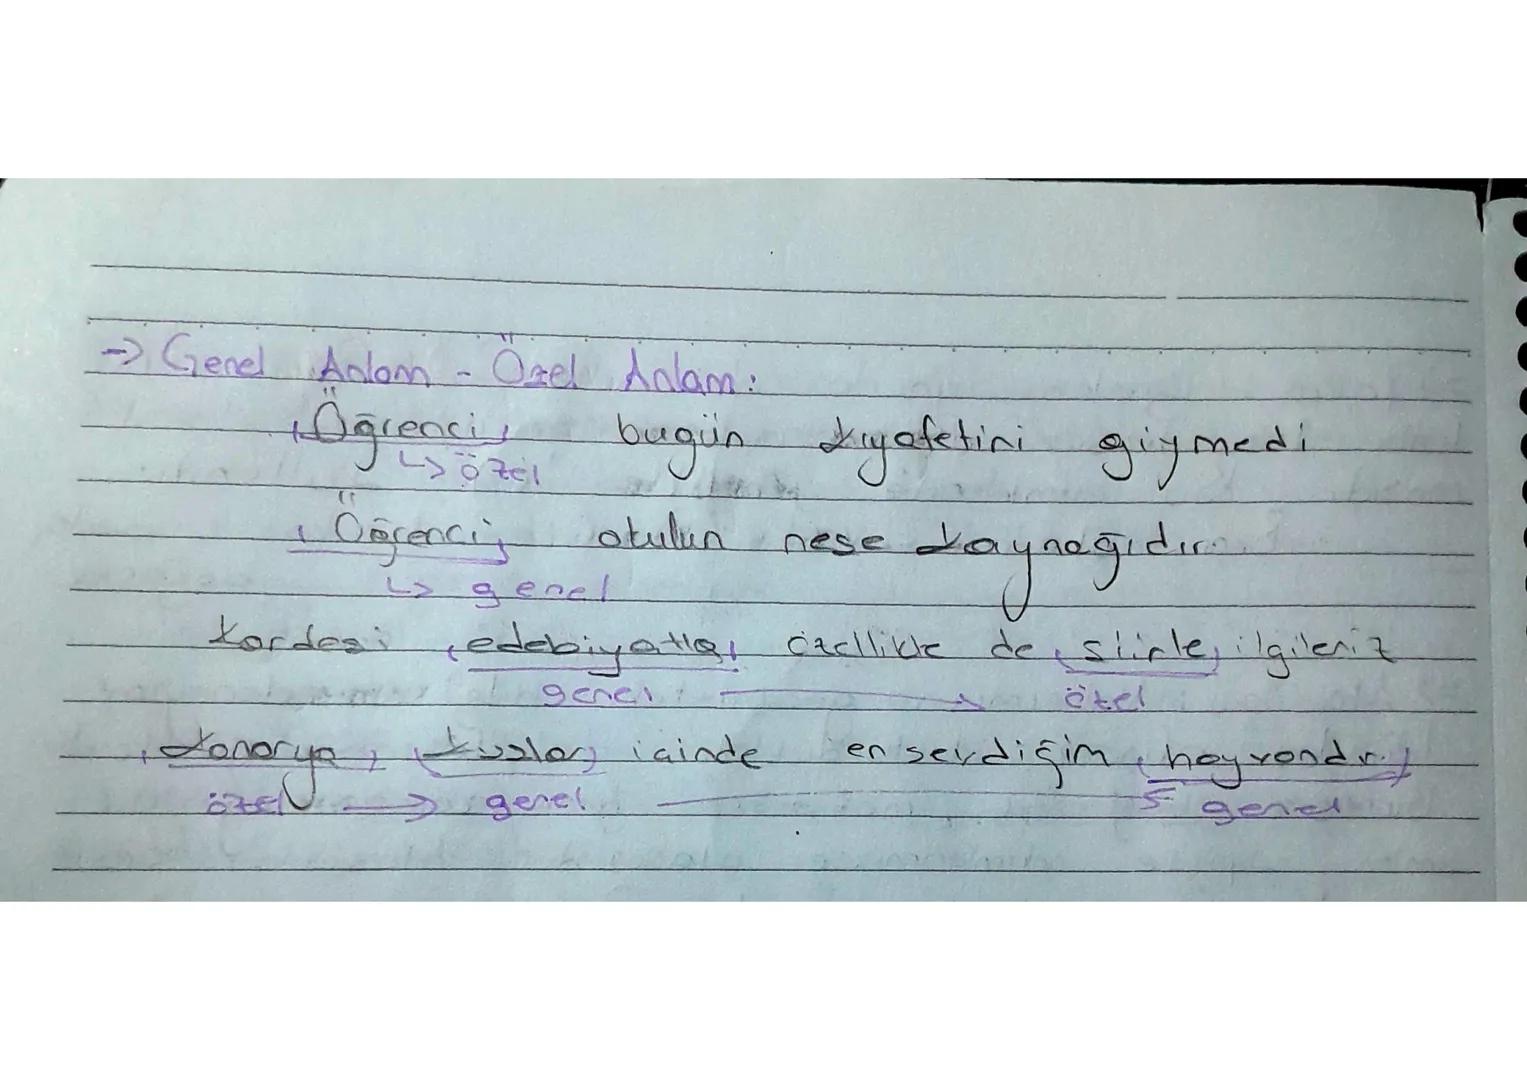 → Genel Anlam - Özel Anlam:
Öğrenci, bugün kıyafetini giymedi
↳ özel
Öğrenci, okulun neşe kaynağıdır.
↳ genel
Kardeşi edebiyatla, özellikle de şiirle, ilgileniz
genel → özel
Kanarya, kuşlar, içinde en sevdiğim hayvandır.
özel → genel → genel